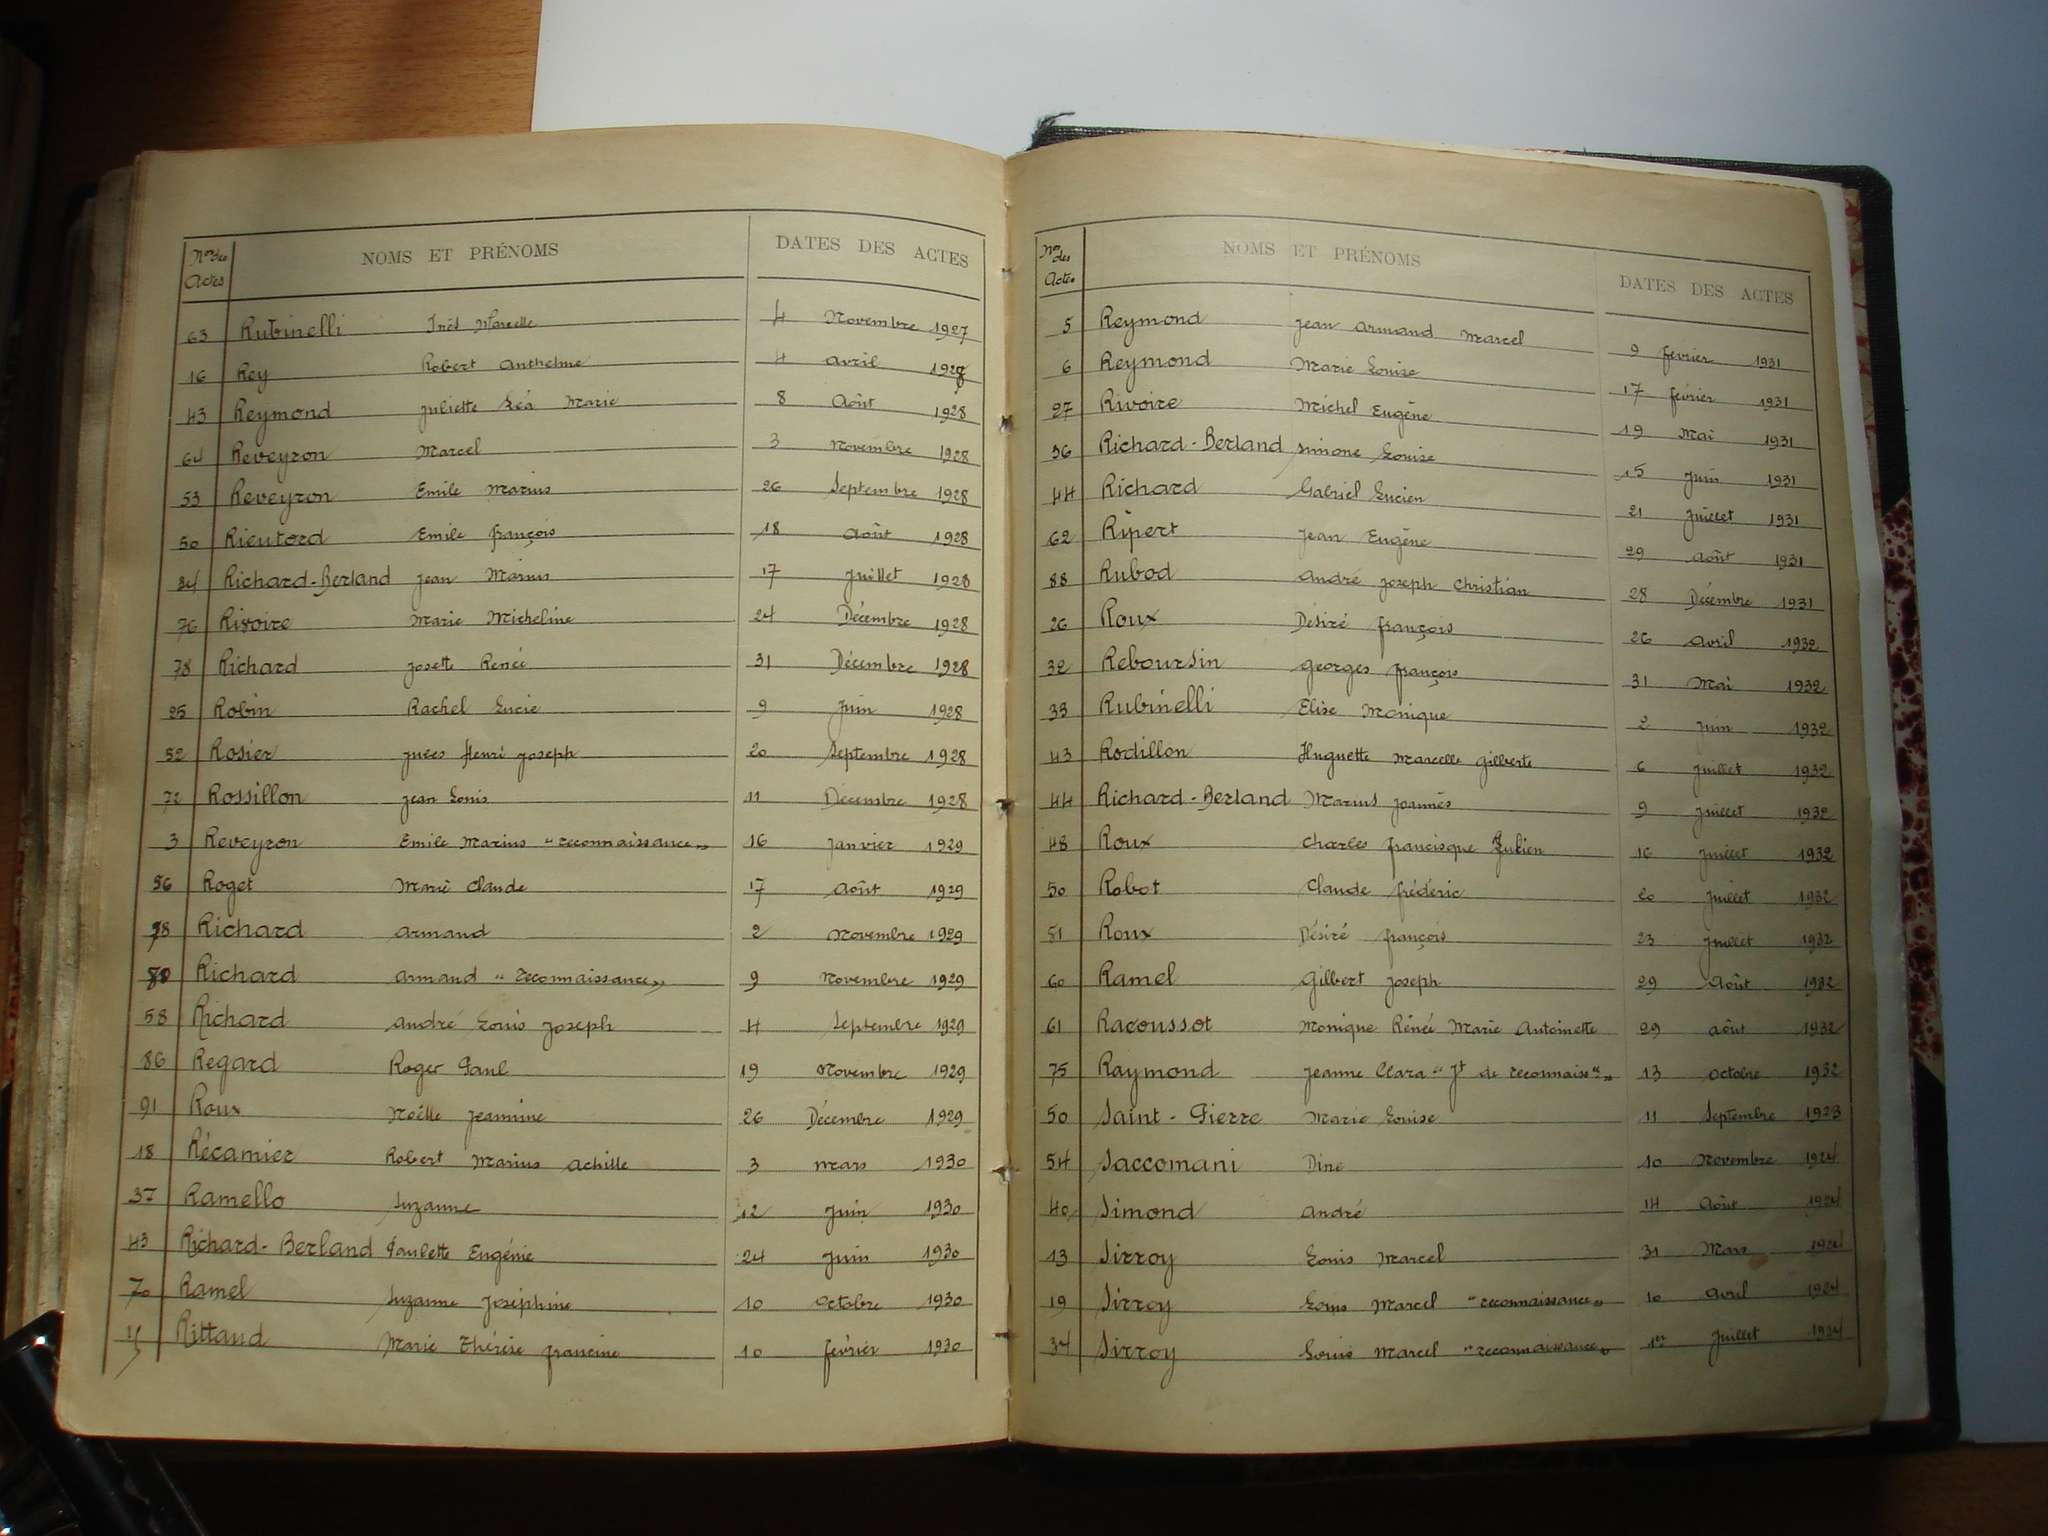 Nos des Actes NOMS ET PRÉNOMS DATES DES ACTES
63 Rubinelli Inès Marcelle 4 Novembre 1927
16 Rey Robert Anthelme 4 avril 1928
43 Reymond Juliette Léa Marie 8 Août 1928
64 Reveyron Marcel 3 Novembre 1928
53 Reveyron Emile Marius 26 Septembre 1928
50 Rieutord Emile françois 18 Août 1928
34 Richard-Berland Jean Marius 17 Juillet 1928
76 Rivoire Marie Micheline 24 Décembre 1928
78 Richard Josette Renée 31 Décembre 1928
25 Robin Rachel Lucie 9 Juin 1928
52 Rosier Jules Henri Joseph 20 Septembre 1928
72 Rossillon Jean Louis 11 Décembre 1928
3 Reveyron Emile Marius "reconnaissance" 16 Janvier 1929
56 Roget Marie Claude 17 Août 1929
78 Richard Armand 2 Novembre 1929
80 Richard Armand "reconnaissance" 9 Novembre 1929
58 Richard André Louis Joseph 4 Septembre 1929
86 Regard Roger Paul 19 Novembre 1929
91 Roux Noëlle Jeannine 26 Décembre 1929
18 Récamier Robert Marius Achille 3 mars 1930
37 Ramello Suzanne 12 Juin 1930
43 Richard-Berland Paulette Eugénie 24 Juin 1930
70 Ramel Suzanne Joséphine 10 Octobre 1930
Rittaud Marie Thérèse francine 10 février 1930
Nos des Actes NOMS ET PRÉNOMS DATES DES ACTES
5 Reymond Jean Armand Marcel 9 février 1931
6 Reymond Marie Louise 17 février 1931
27 Rivoire Michel Eugène 19 Mai 1931
36 Richard-Berland Simone Louise 15 Juin 1931
44 Richard Gabriel Lucien 21 Juillet 1931
62 Ripert Jean Eugène 29 Août 1931
88 Rubod André Joseph Christian 28 Décembre 1931
26 Roux Désiré françois 26 Avril 1932
32 Reboursin Georges françois 31 Mai 1932
33 Rubinelli Elise Monique 2 Juin 1932
43 Rodillon Huguette Marcelle Gilberte 6 Juillet 1932
44 Richard-Berland Marius Joannès 9 Juillet 1932
48 Roux Charles francisque Julien 16 Juillet 1932
50 Robot Claude frédéric 20 Juillet 1932
51 Roux Désiré françois 23 Juillet 1932
60 Ramel Gilbert Joseph 29 Août 1932
61 Racoussot Monique Rénée Marie Antoinette 29 août 1932
75 Raymond Jeanne Clara "Jt de reconnaisce" 13 octobre 1932
50 Saint-Pierre Marie Louise 11 Septembre 1923
54 Saccomani Dine 10 Novembre 1924
40 Simond André 14 Août 1924
13 Sirroy Louis Marcel 31 Mars 1924
19 Sirroy Louis Marcel "reconnaissance" 10 Avril 1924
34 Sirroy Louis Marcel "reconnaissance" 1er Juillet 1924